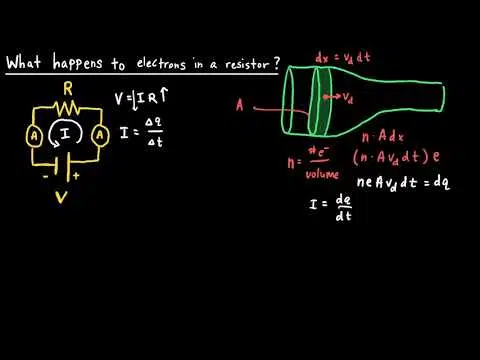 What happens to electrons in a resistor?
R
A I A
- +
V
V = ↓I R↑
I = Δq/Δt
dx = v_d dt
A
v_d
n = #e⁻/volume
n · A dx
(n · A v_d dt) e
n e A v_d dt = dq
I = dq/dt